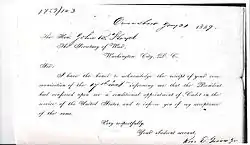 For Hon. John B. Floyd
The Secretary of War,
Washington City, D. C.
Sir:
I have the honor to acknowledge the receipt of your com-
munication of the informing me that the President
has conferred upon me a conditional appointment of Cadet in the
service of the United States, and to inform you of my acceptance
of the same.
Very respectfully,
Your obedient servant,